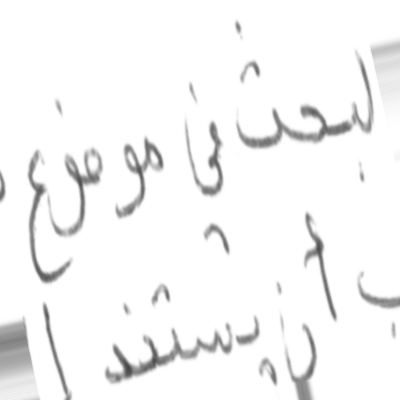 لبحث في موضوع
أن يستند ا